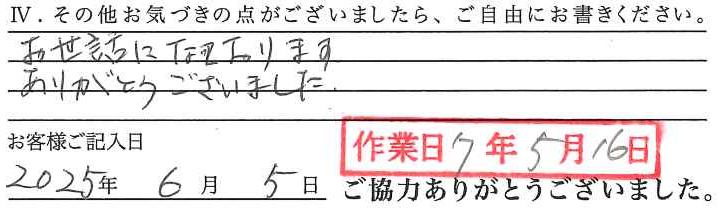 Ⅳ.その他お気づきの点がございましたら、ご自由にお書きください。
お世話になっております
ありがとうございました.
お客様ご記入日
作業日 7年 5月 16日
2025年 6月 5日 ご協力ありがとうございました。